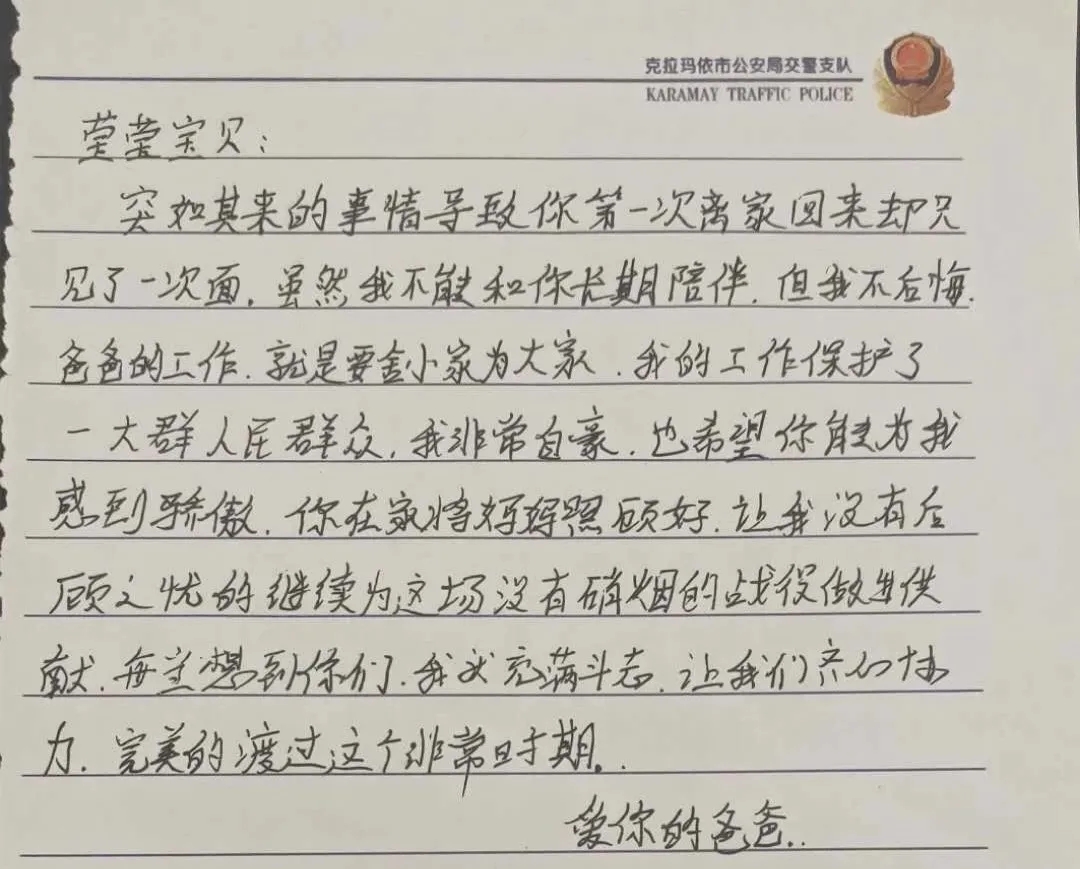 克拉玛依市公安局交警支队
KARAMAY TRAFFIC POLICE
莹莹宝贝：
突如其来的事情导致你第一次离家回来却只
见了一次面，虽然我不能和你长期陪伴，但我不后悔，
爸爸的工作，就是要舍小家为大家，我的工作保护了
一大群人民群众，我非常自豪，也希望你能为我
感到骄傲，你在家将妈妈照顾好，让我没有后
顾之忧的继续为这场没有硝烟的战役做出供
献，每当想到你们，我就充满斗志，让我们齐心协
力，完美的渡过这个非常时期。
爱你的爸爸..